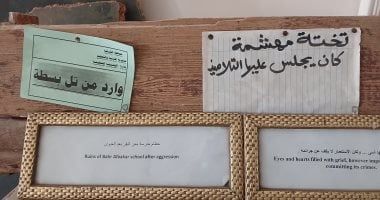 وارد من تل بسطة
تختة مهشمة
كان يجلس عليها التلاميذ
حطام مدرسة بحر البقر بعد العدوان
Ruins of Bahr Albakar school after aggression
أسى ... ولكن الاستعمار لا يكف عن جرائمه
Eyes and hearts filled with grief, however impe
committing its crimes.